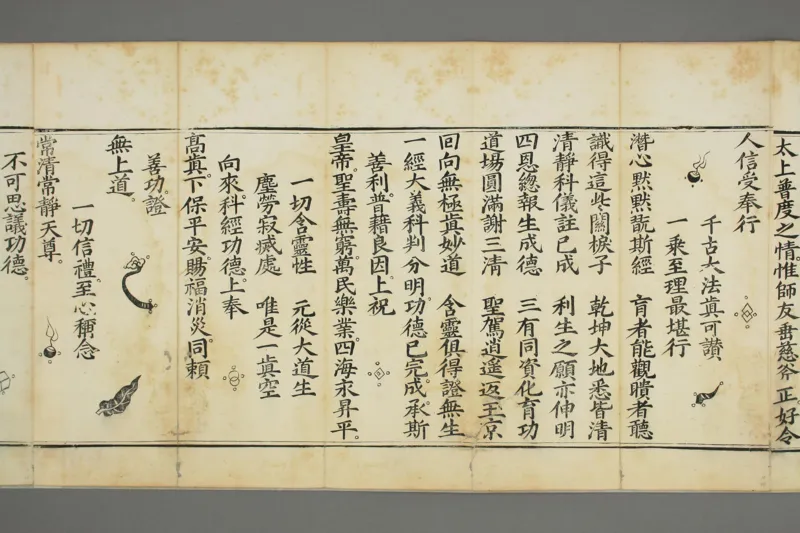 太上普度之情惟師友垂慈斧正好令
人信受奉行
千古大法真可讃
一乗至理最堪行
潛心黙黙翫斯經　盲者能觀瞶者聽
識得這些關棙子　乾坤大地悉皆清
清靜科儀註已成　利生之願亦伸明
四恩總報生成德　三有同資化育功
道塲圓滿謝三清　聖駕逍遥返玉京
回向無極眞妙道　含靈俱得證無生
一經大義科判分明。功德已完成。承斯
善利。普藉良因。上祝
皇帝。聖壽無窮。萬民樂業。四海永昇平。
一切含靈性　元從大道生
塵勞寂滅處　唯是一真空
向來。科經功德。上奉
高眞。下保平安。賜福消災。同頼
善功。證
無上道。
一切信禮。至心稱念
常清常靜天尊。
不可思議功德。